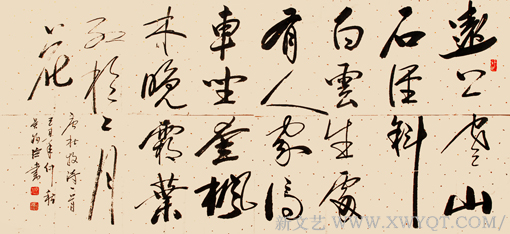 遠上寒山
石徑斜
白雲生處
有人家停
車坐愛楓
林晚霜葉
紅於二月
花
唐杜牧詩一首
年仲秋
書
新文艺 WWW.XWYQT.COM/